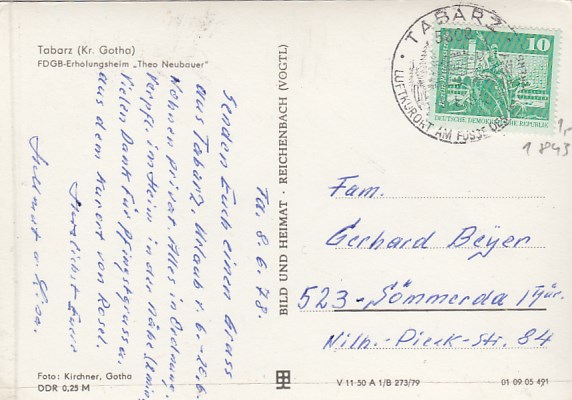 Tabarz (Kr. Gotha)
FDGB-Erholungsheim „Theo Neubauer"
Ta. 8. 6. 78.
Senden Euch einen Gruss
aus Tabarz, Urlaub v. 6.-20.6.
Wohnen privat. Alles in Ordnung.
Verpfl. im Heim in der Nähe
Vielen Dank für Pfingstgruss u.
aus dem Kurort von Rosel.
Herzlichst Euer
Hellmut u.
Foto: Kirchner, Gotha
DDR 0,25 M
BILD UND HEIMAT · REICHENBACH (VOGTL)
TABARZ
5808
LUFTKURORT AM FUSSE DES
10
DEUTSCHE DEMOKRATISCHE REPUBLIK
1,-
1843
Fam.
Gerhard Beyer
523-Sömmerda/Thür.
Wilh.-Pieck-Str. 84
V 11-50 A 1/B 273/79
01 09 05 491